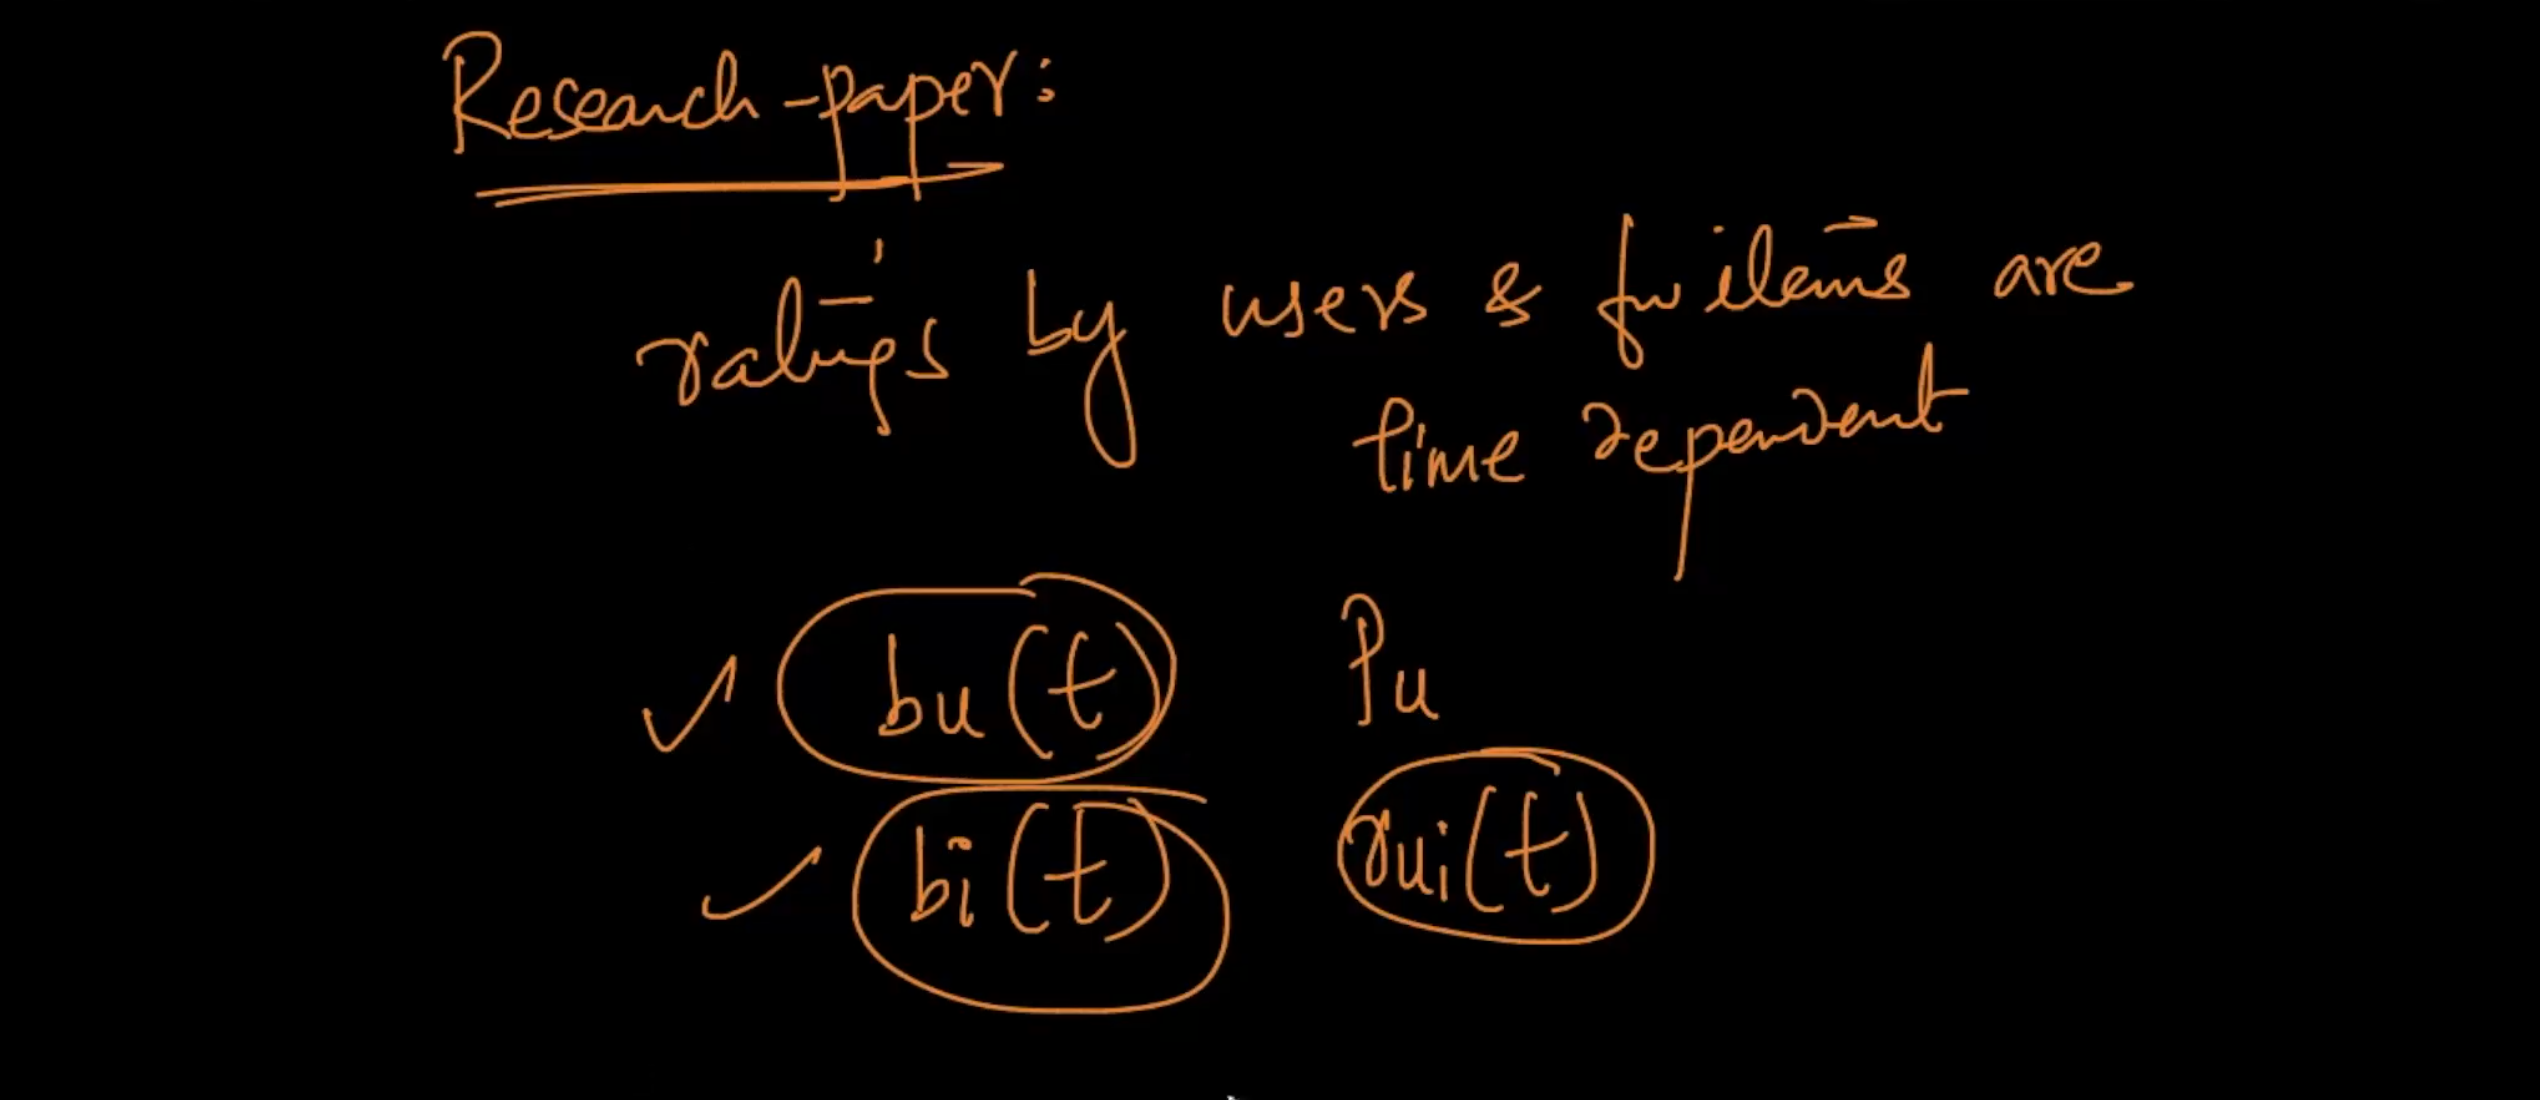 Research-paper:
ratings by users & for items are
time dependent
bu(t) Pu
bi(t) rui(t)